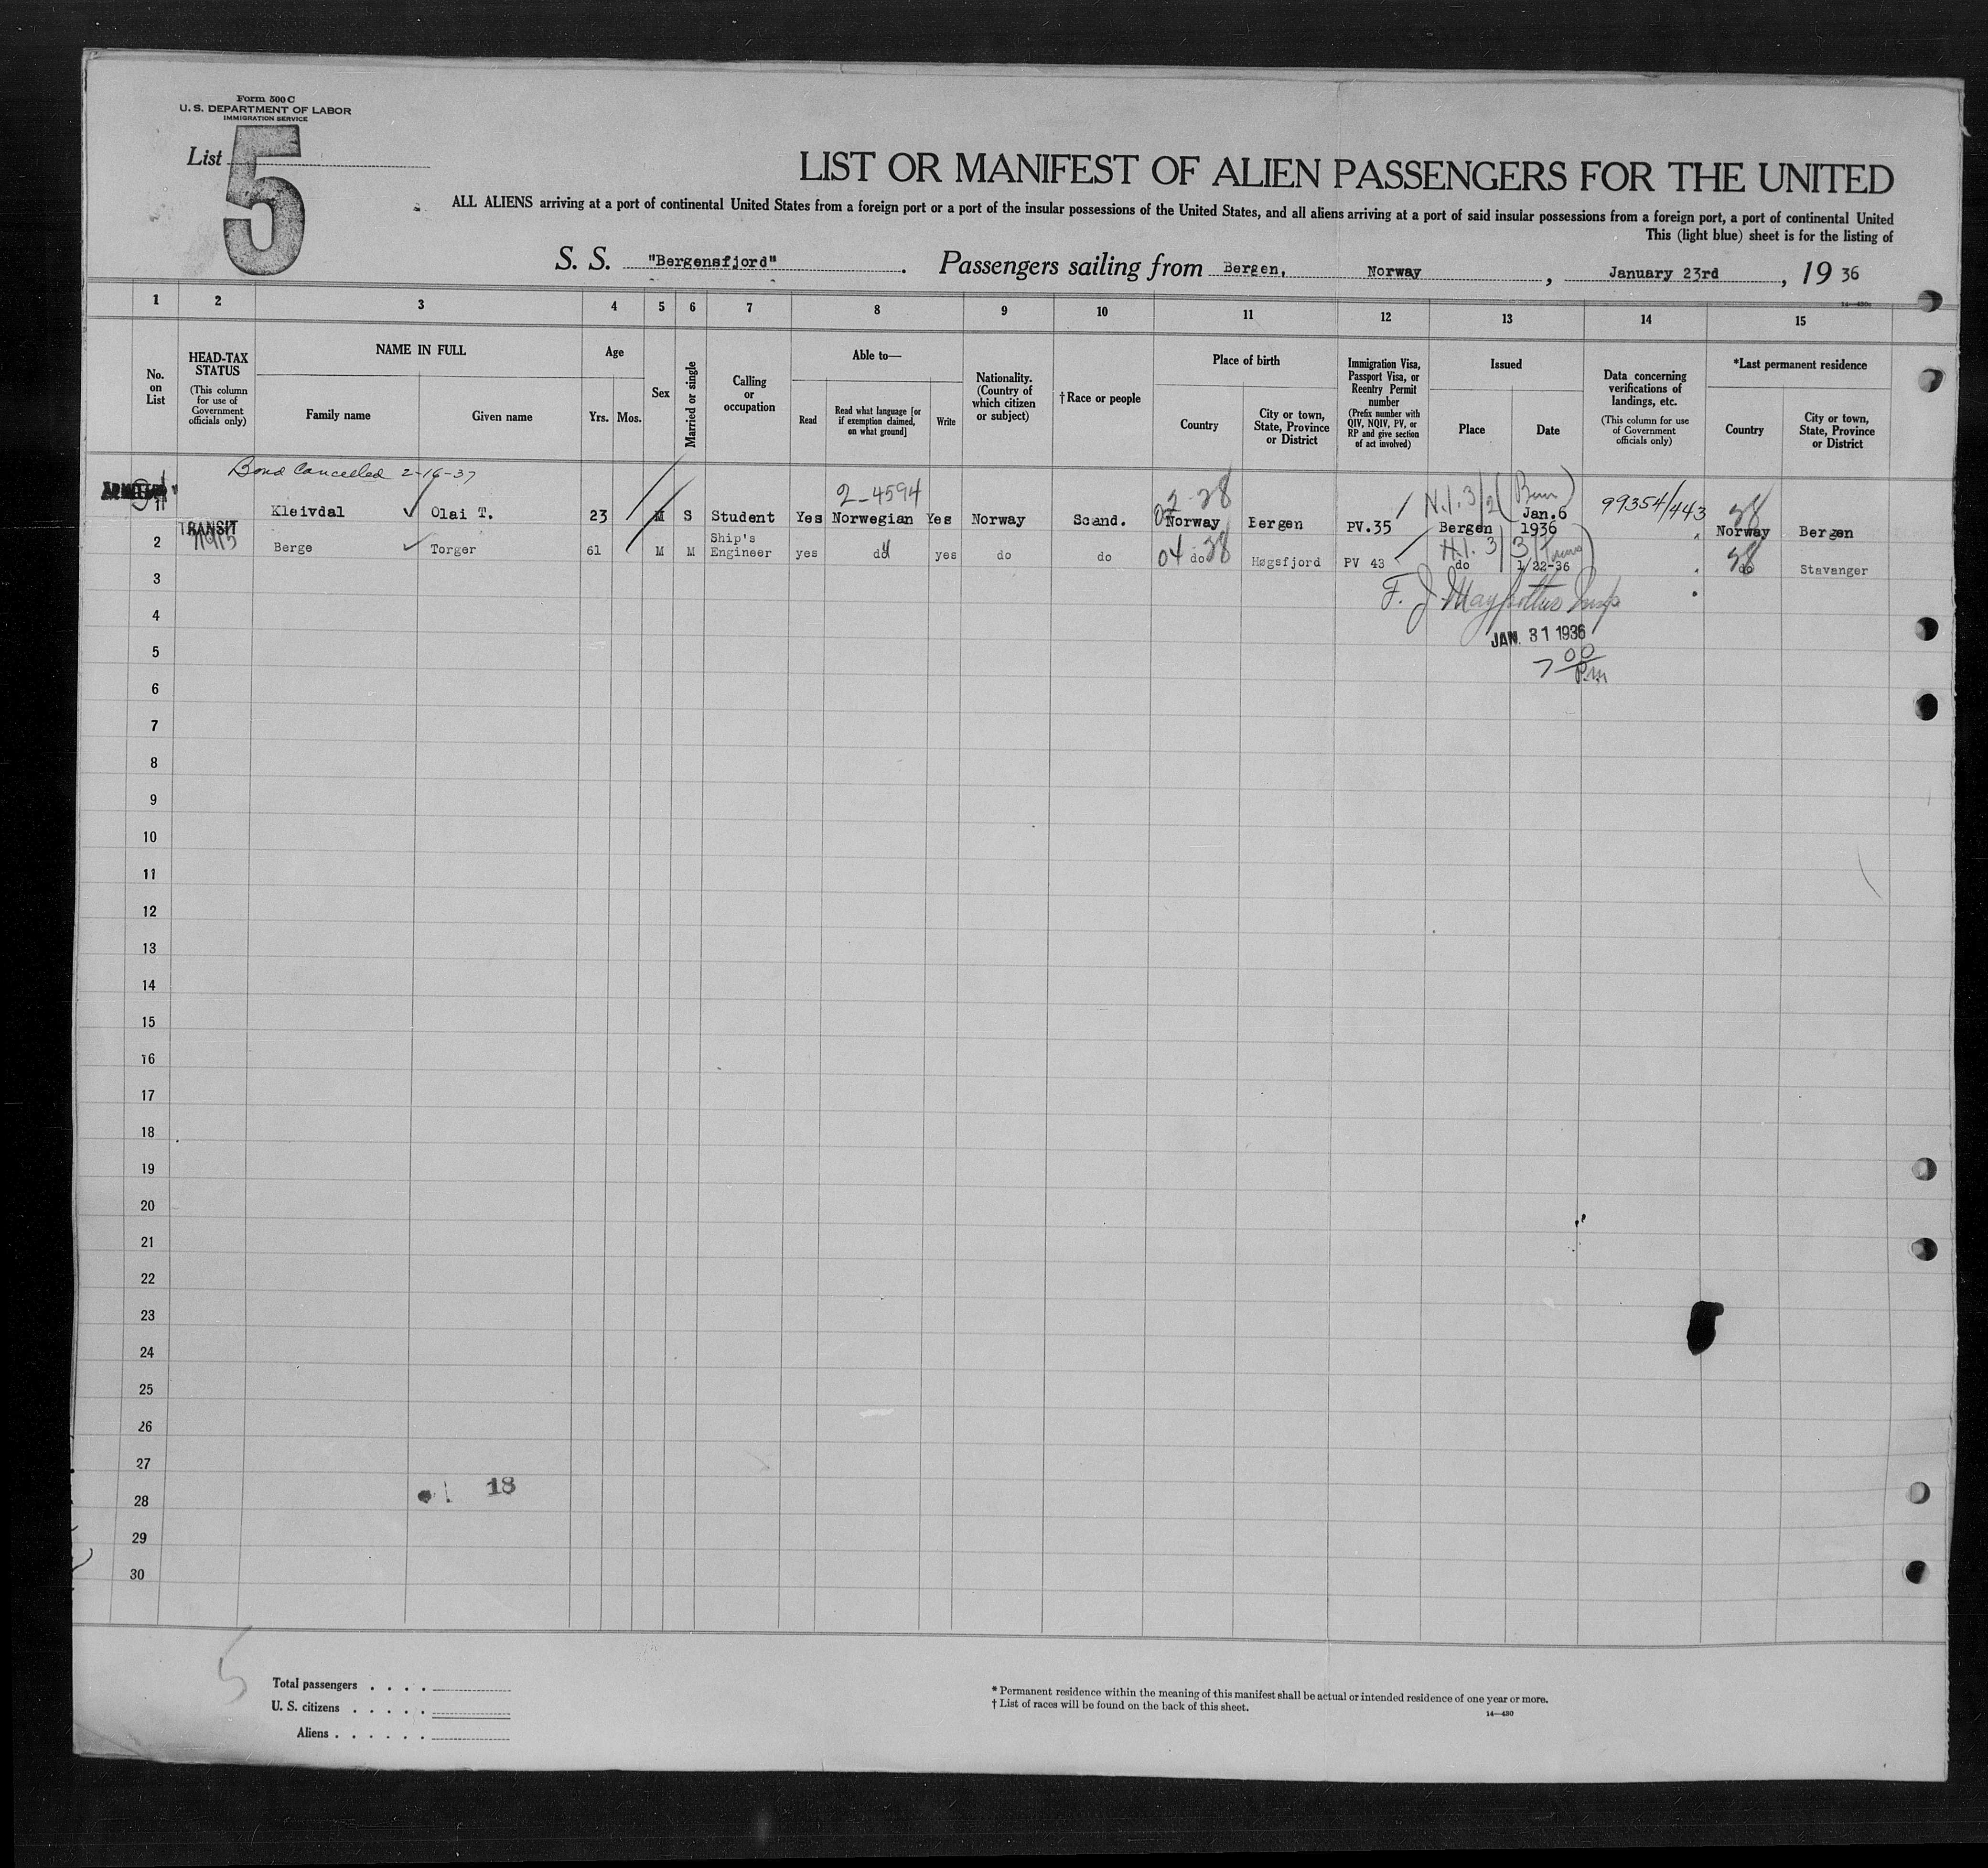 Form 500 C
U. S. DEPARTMENT OF LABOR
IMMIGRATION SERVICE
List 5
LIST OR MANIFEST OF ALIEN PASSENGERS FOR THE UNITED
ALL ALIENS arriving at a port of continental United States from a foreign port or a port of the insular possessions of the United States, and all aliens arriving at a port of said insular possessions from a foreign port, a port of continental United
This (light blue) sheet is for the listing of
S. S. "Bergensfjord" . Passengers sailing from Bergen, Norway , January 23rd , 19 36
1 2 3 4 5 6 7 8 9 10 11 12 13 14 15
No. on List
HEAD-TAX STATUS
(This column for use of Government officials only)
NAME IN FULL
Family name
Given name
Age
Yrs. Mos.
Sex
Married or single
Calling or occupation
Able to—
Read
Read what language [or if exemption claimed, on what ground]
Write
Nationality. (Country of which citizen or subject)
† Race or people
Place of birth
Country
City or town, State, Province or District
Immigration Visa, Passport Visa, or Reentry Permit number
(Prefix number with QIV, NQIV, PV, or RP and give section of act involved)
Issued
Place
Date
Data concerning verifications of landings, etc.
(This column for use of Government officials only)
*Last permanent residence
Country
City or town, State, Province or District
Bond Cancelled 2-16-37
2-4594
N.I. 3/2
99354/443
ADMITTED
Kleivdal Olai T. 23 M S Student Yes Norwegian Yes Norway Scand. Norway Bergen PV.35 Bergen Jan.6 1936 Norway Bergen
TRANSIT
2 Berge Torger 61 M M Ship's Engineer yes do yes do do 04 do 38 Høgsfjord PV 43 do 1/22-36 do Stavanger
3
F. J.
4
JAN. 31 1936
5
7 00 Pm
6
7
8
9
10
11
12
13
14
15
16
17
18
19
20
21
22
23
24
25
26
27
18
28
29
30
5
Total passengers . . . .
U. S. citizens . . . . .
Aliens . . . . . .
* Permanent residence within the meaning of this manifest shall be actual or intended residence of one year or more.
† List of races will be found on the back of this sheet.
14—430